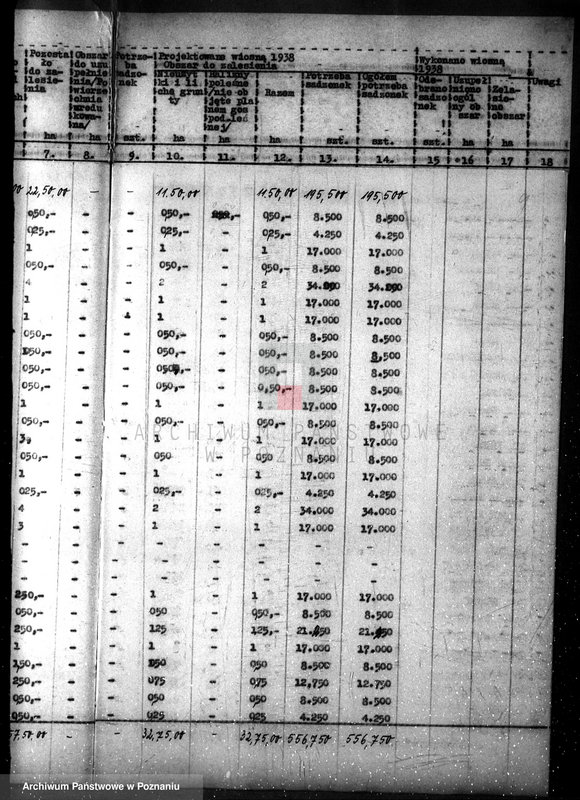 Pozosta Obszar Potrze Projektowane wiosną 1938 Wykonano wiosną
ło do uzu ba Obszar do zalesienia 1938
do za pełnie sadzo Nieużyt Halizny Razem Potrzeba Ogółem Ode Uzupeł Zale Uwagi
lesie nia/Po nek ki i li polne sadzonek potrzeba brano niono sie
nia wierzc che grun /nie ob sadzonek sadzo ogól no
hnia ty jęte pla nek ny ob obszar
zredu nem gos szar
kowa podleś
na/ nej/
ha ha szt. ha ha ha szt. szt. szt. ha ha
7. 8. 9. 10. 11. 12. 13. 14. 15 16 17 18
22,50,00 - - 11.50,00 11.50,00 195,500 195,500
050,- - - 050,- 050,- 8.500 8.500
025,- - - 025,- - 025,- 4.250 4.250
1 - - 1 - 1 17.000 17.000
050,- - - 050,- - 050,- 8.500 8.500
4 - - 2 - 2 34.000 34.000
1 - - 1 - 1 17.000 17.000
1 - - 1 - 1 17.000 17.000
050,- - - 050,- - 050,- 8.500 8.500
050,- - - 050,- - 050,- 8.500 8,500
050,- - - 050,- - 050,- 8.500 8.500
050,- - - 050,- - 0,50,- 8.500 8.500
1 - - 1 - 1 17.000 17.000
050,- - - 050,- - 050,- 8.500 8.500
3 - - 1 - 1 17.000 17.000
050,- - - 050 - 050 8.500 8.500
1 - - 1 - 1 17.000 17.000
025,- - - 025,- - 025,- 4.250 4.250
4 - - 2 - 2 34.000 34.000
3 - - 1 - 1 17.000 17.000
- - - - - - - -
- - - - - - - -
- - - - - - - -
250,- - - 1 - 1 17.000 17.000
050,- - - 050 - 050,- 8.500 8.500
250,- - - 125 - 125,- 21.250 21.250
1 - - 1 - 1 17.000 17.000
150,- - - 050 - 050 8.500 8.500
250,- - - 075 - 075 12.750 12.750
050,- - - 050 - 050 8.500 8.500
050,- - - 025 - 025 4.250 4.250
57.50,00 - - 32,75,00 32,75,00 556,750 556,750
ARCHIWUM PAŃSTWOWE
W POZNANIU
Archiwum Państwowe w Poznaniu